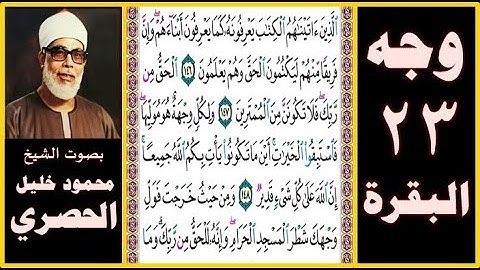 وجه
٢٣
البقرة
ٱلَّذِينَ ءَاتَيْنَٰهُمُ ٱلْكِتَٰبَ يَعْرِفُونَهُۥ كَمَا يَعْرِفُونَ أَبْنَآءَهُمْ ۖ وَإِنَّ
فَرِيقًا مِّنْهُمْ لَيَكْتُمُونَ ٱلْحَقَّ وَهُمْ يَعْلَمُونَ ١٤٦ ٱلْحَقُّ مِن
رَّبِّكَ ۖ فَلَا تَكُونَنَّ مِنَ ٱلْمُمْتَرِينَ ١٤٧ وَلِكُلٍّ وِجْهَةٌ هُوَ مُوَلِّيهَا ۖ
فَٱسْتَبِقُوا۟ ٱلْخَيْرَٰتِ ۚ أَيْنَ مَا تَكُونُوا۟ يَأْتِ بِكُمُ ٱللَّهُ جَمِيعًا ۚ
إِنَّ ٱللَّهَ عَلَىٰ كُلِّ شَىْءٍ قَدِيرٌ ١٤٨ وَمِنْ حَيْثُ خَرَجْتَ فَوَلِّ
وَجْهَكَ شَطْرَ ٱلْمَسْجِدِ ٱلْحَرَامِ ۖ وَإِنَّهُۥ لَلْحَقُّ مِن رَّبِّكَ ۗ وَمَا
بصوت الشيخ
محمود خليل
الحصري